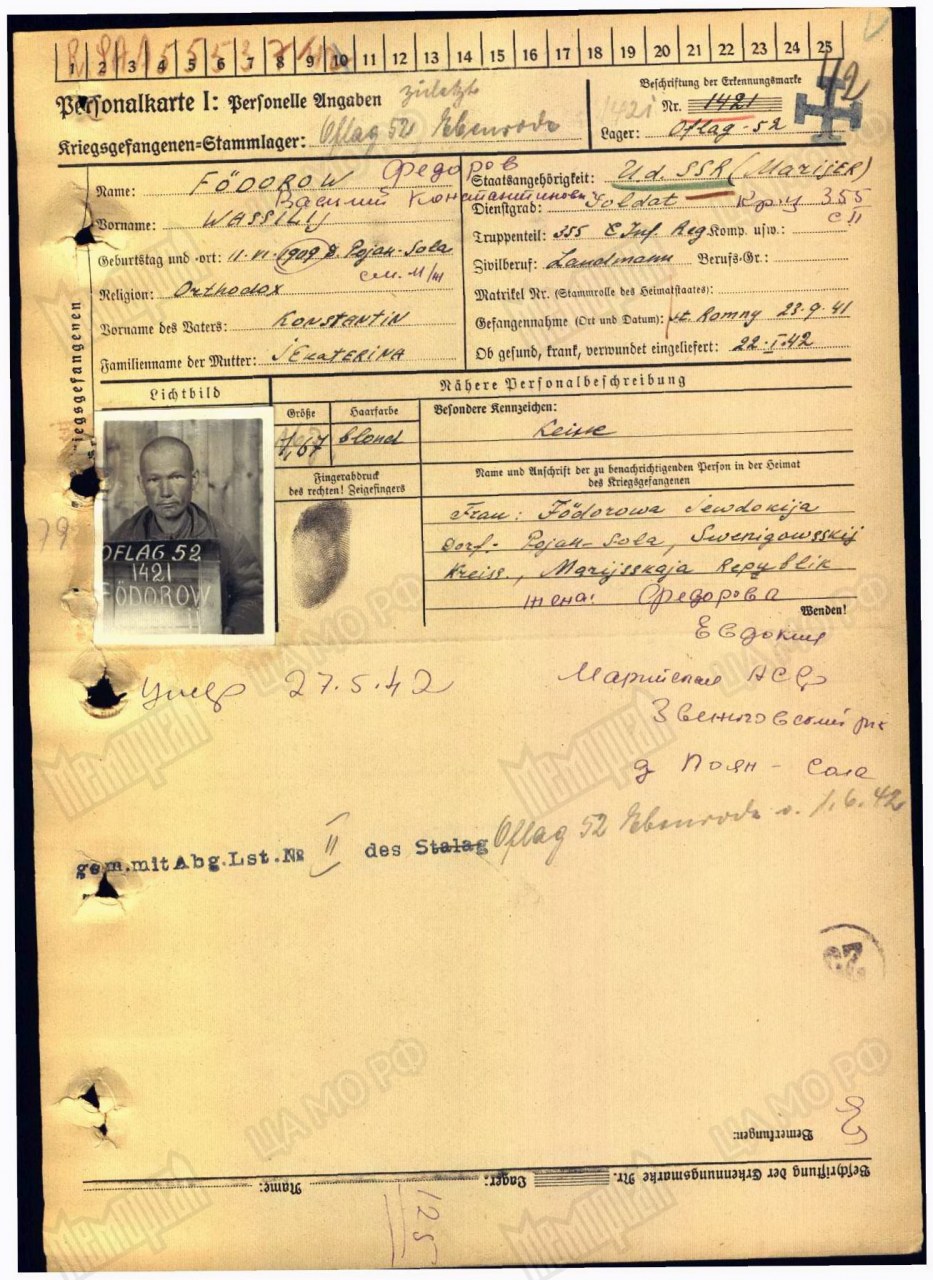 1 2 3 4 5 6 7 8 9 10 11 12 13 14 15 16 17 18 19 20 21 22 23 24 25
Personalkarte I: Personelle Angaben
zuletzt
Kriegsgefangenen=Stammlager: Oflag 52 Ebenrode
Beschriftung der Erkennungsmarke
Nr. 1421
Lager: Oflag-52
42
1421
Name: FÖDOROW Федоров
Василий Константинович
Vorname: WASSILIJ
Geburtstag und -ort: 11.VI.1909 D. Pojan-Sola
см. м/ш
Religion: Orthodox
Vorname des Vaters: KONSTANTIN
Familienname der Mutter: JEKATERINA
Staatsangehörigkeit: Ud. SSR (MARIJER)
Dienstgrad: Soldat
Кр-ц 355
сп
Truppenteil: 355 Inf. Reg Komp. usw.:
Zivilberuf: Landmann Berufs-Gr.:
Matrikel Nr. (Stammrolle des Heimatstaates):
Gefangennahme (Ort und Datum): Romny 23.9.41
Ob gesund, krank, verwundet eingeliefert: 22.I.42
Kriegsgefangenen
Lichtbild
Nähere Personalbeschreibung
Größe
1,67
Haarfarbe
blond
Besondere Kennzeichen:
Keine
Fingerabdruck
des rechten! Zeigefingers
Name und Anschrift der zu benachrichtigenden Person in der Heimat
des Kriegsgefangenen
Frau: Födorowa Jewdokija
Dorf- Pojan-Sola, Swenigowsskij
Kreis., Marijsskaja Republik
жена: Федорова
Wenden!
Евдокия
Марийская АССР
Звениговский рн
д Поян-Сола
OFLAG 52
1421
FÖDOROW
79
Умер 27.5.42
gem.mit Abg.Lst.№ II des Stalag Oflag 52 Ebenrode v. 1.6.42
Bemerkungen:
Beschriftung der Erkennungsmarke Nr.
Lager:
Name:
125
МЕМОРИАЛ
ЦАМО РФ